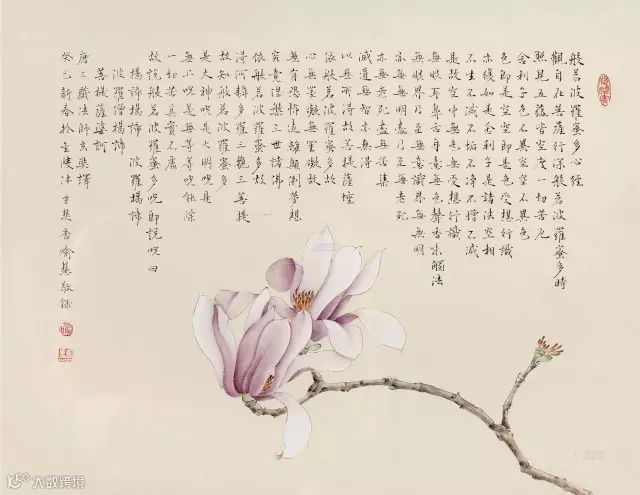 般若波羅蜜多心經
觀自在菩薩行深般若波羅蜜多時
照見五蘊皆空度一切苦厄
舍利子色不異空空不異色
色即是空空即是色受想行識
亦復如是舍利子是諸法空相
不生不滅不垢不淨不增不減
是故空中無色無受想行識
無眼耳鼻舌身意無色聲香味觸法
無眼界乃至無意識界無無明
亦無無明盡乃至無老死
亦無老死盡無苦集
滅道無智亦無得
以無所得故菩提薩埵
依般若波羅蜜多故
心無罣礙無罣礙故
無有恐怖遠離顛倒夢想
究竟涅槃三世諸佛
依般若波羅蜜多故
得阿耨多羅三藐三菩提
故知般若波羅蜜多
是大神呪是大明呪是
無上呪是無等等呪能除
一切苦真實不虛
故說般若波羅蜜多呪即說呪曰
揭諦揭諦 波羅揭諦
波羅僧揭諦
菩提薩婆訶
唐三藏法師玄奘譯
癸巳新春於 沐手焚香喻慧敬錄
大数跨境